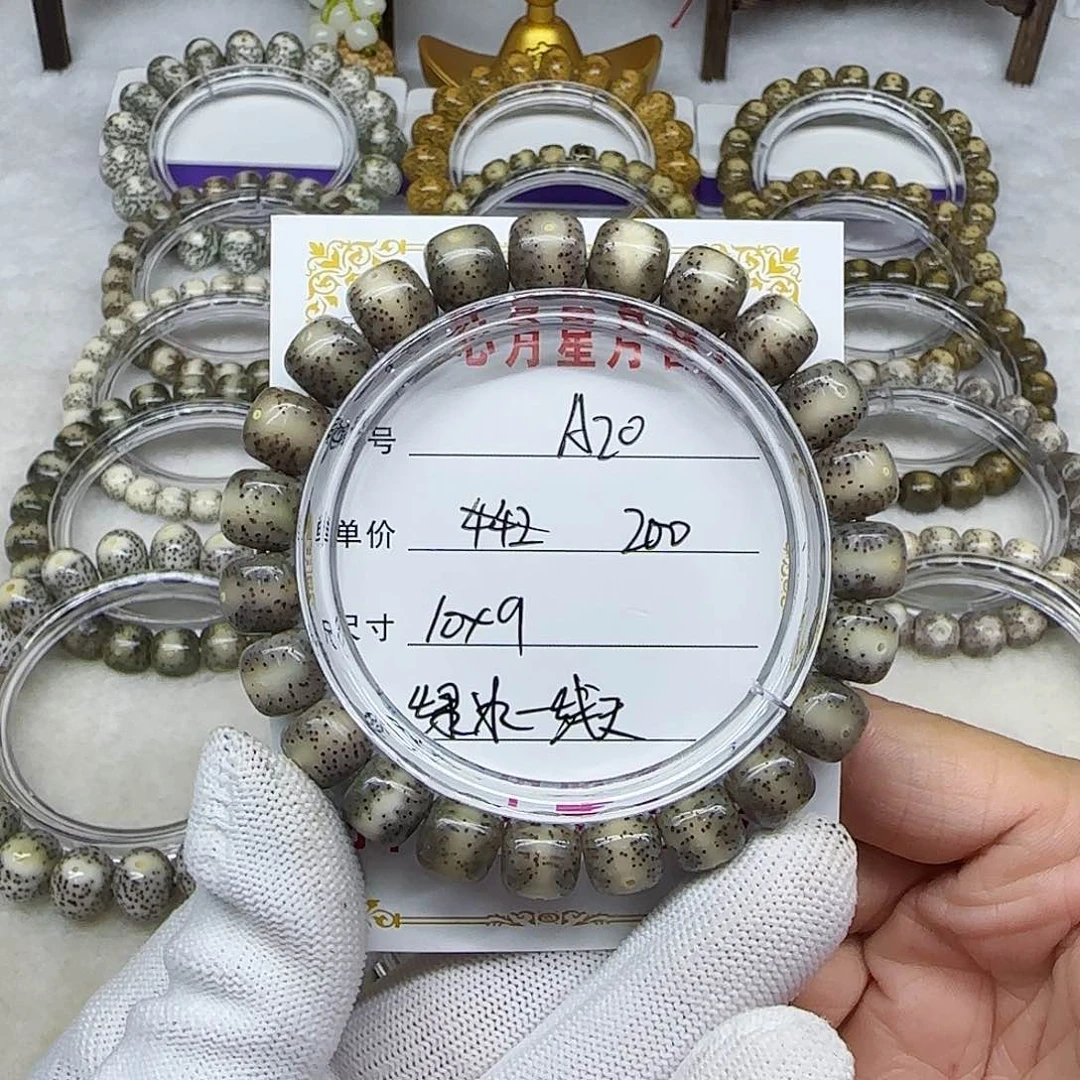 心月星月菩
号 A20
单价 442 200
尺寸 10x9
绿水一线天